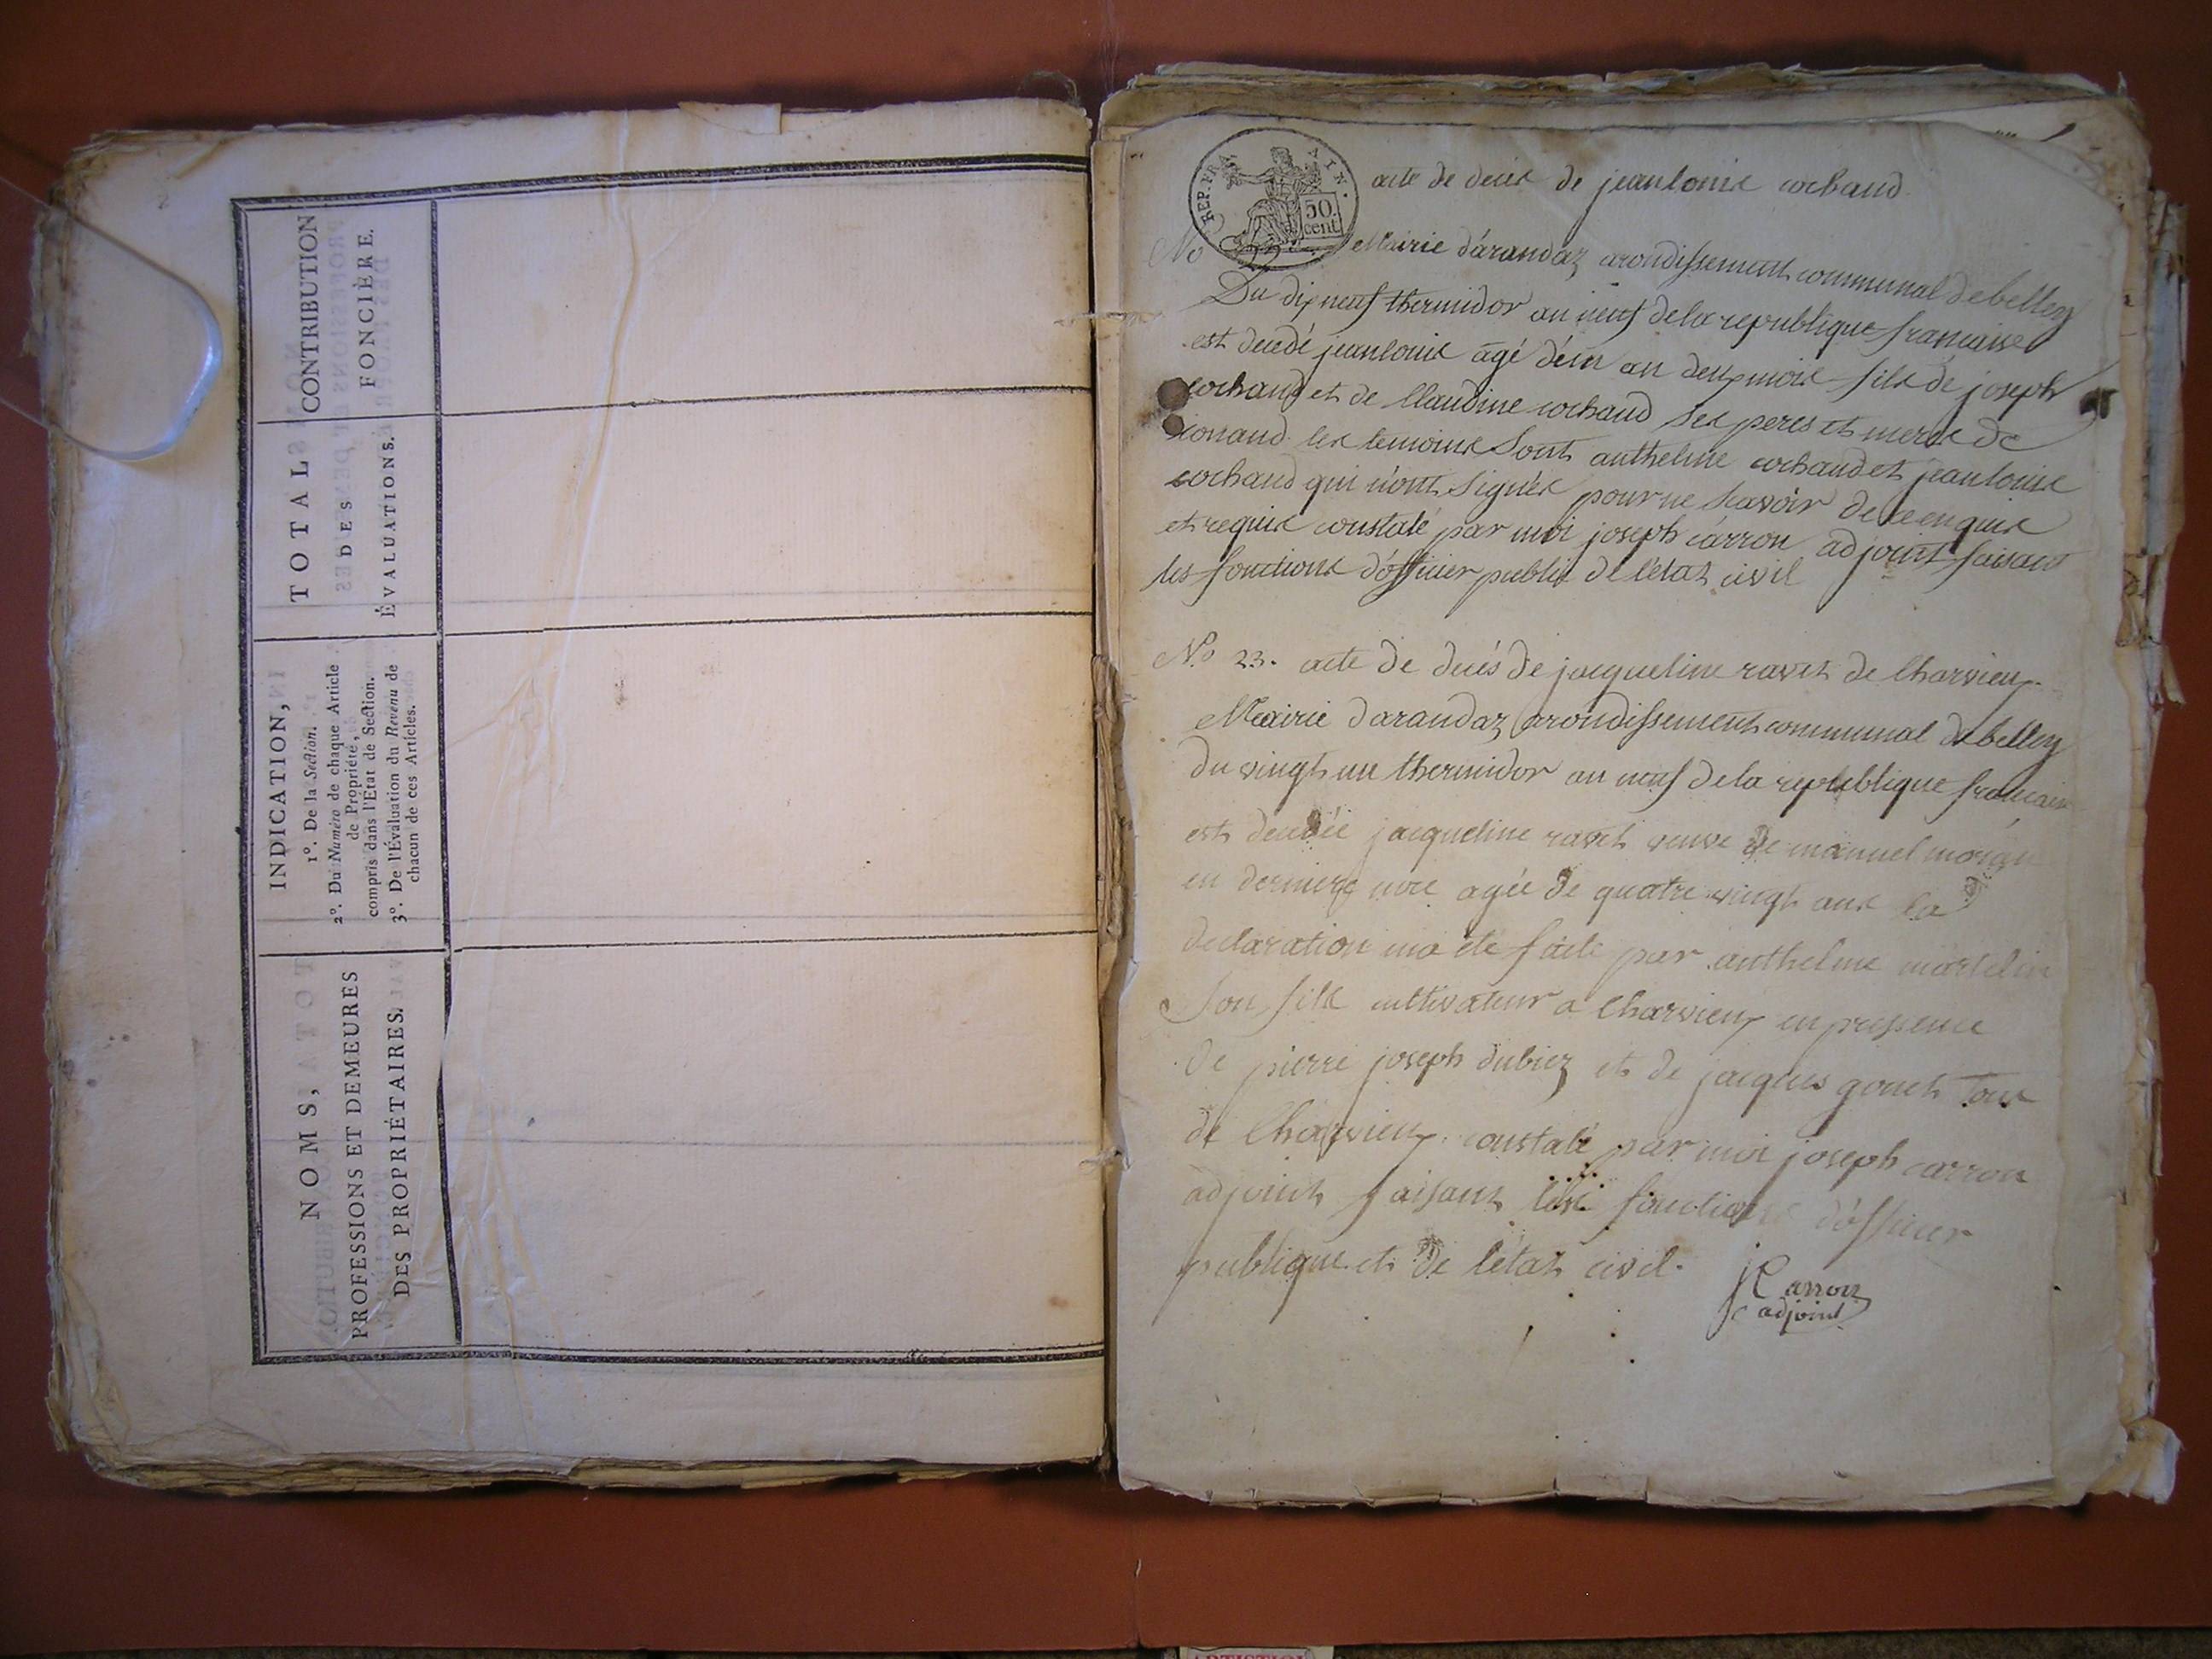 NOMS,
PROFESSIONS ET DEMEURES
DES PROPRIÉTAIRES.
INDICATION,
1°. De la Section.
2°. Du Numéro de chaque Article
de Propriété,
compris dans l'État de Section.
3°. De l'Évaluation du Revenu de
chacun de ces Articles.
TOTAL
DES
ÉVALUATIONS.
CONTRIBUTION
FONCIÈRE.
REP. FRA. AIN.
50.
cent
acte de decès de jeanlouis cochand
No
Mairie d'arandaz arondissement communal de belley
Du dix neuf thermidor an neuf de la republique francaise
est decedé jeanlouis agé d'un an deux mois fils de joseph
cochand et de Claudine cochand ses peres et meres de
les temoins sont anthelme cochand et jeanlouis
cochand qui n'ont signés pour ne scavoir de ce enquis
et requis constaté par moi joseph carron adjoint faisant
les fonctions d'officier public de l'etat civil
No 23. acte de decés de jacqueline ravet de Charvieux
Mairie d'arandaz arondissement communal de belley
du vingt un thermidor an neuf de la republique francaise
est decedée jacqueline ravet veuve de manuel
en derniere agée de quatre vingt ans la
declaration ma été faite par anthelme martelin
son fils cultivateur a Charvieux en pressence
de pierre joseph dubiez et de jacques gonet tous
de Charvieux constaté par moi joseph carron
adjoint faisant les fonctions d'officier
publique et de l'etat civil.
j Carron
adjoint